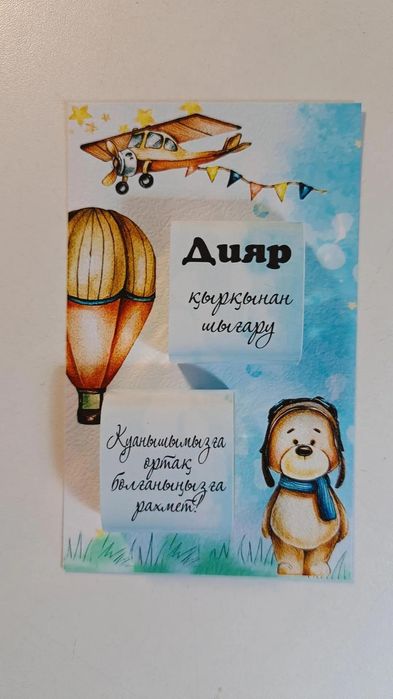 Дияр
қырқынан
шығару
Қуанышымызға
ортақ
болғаныңызға
рахмет!